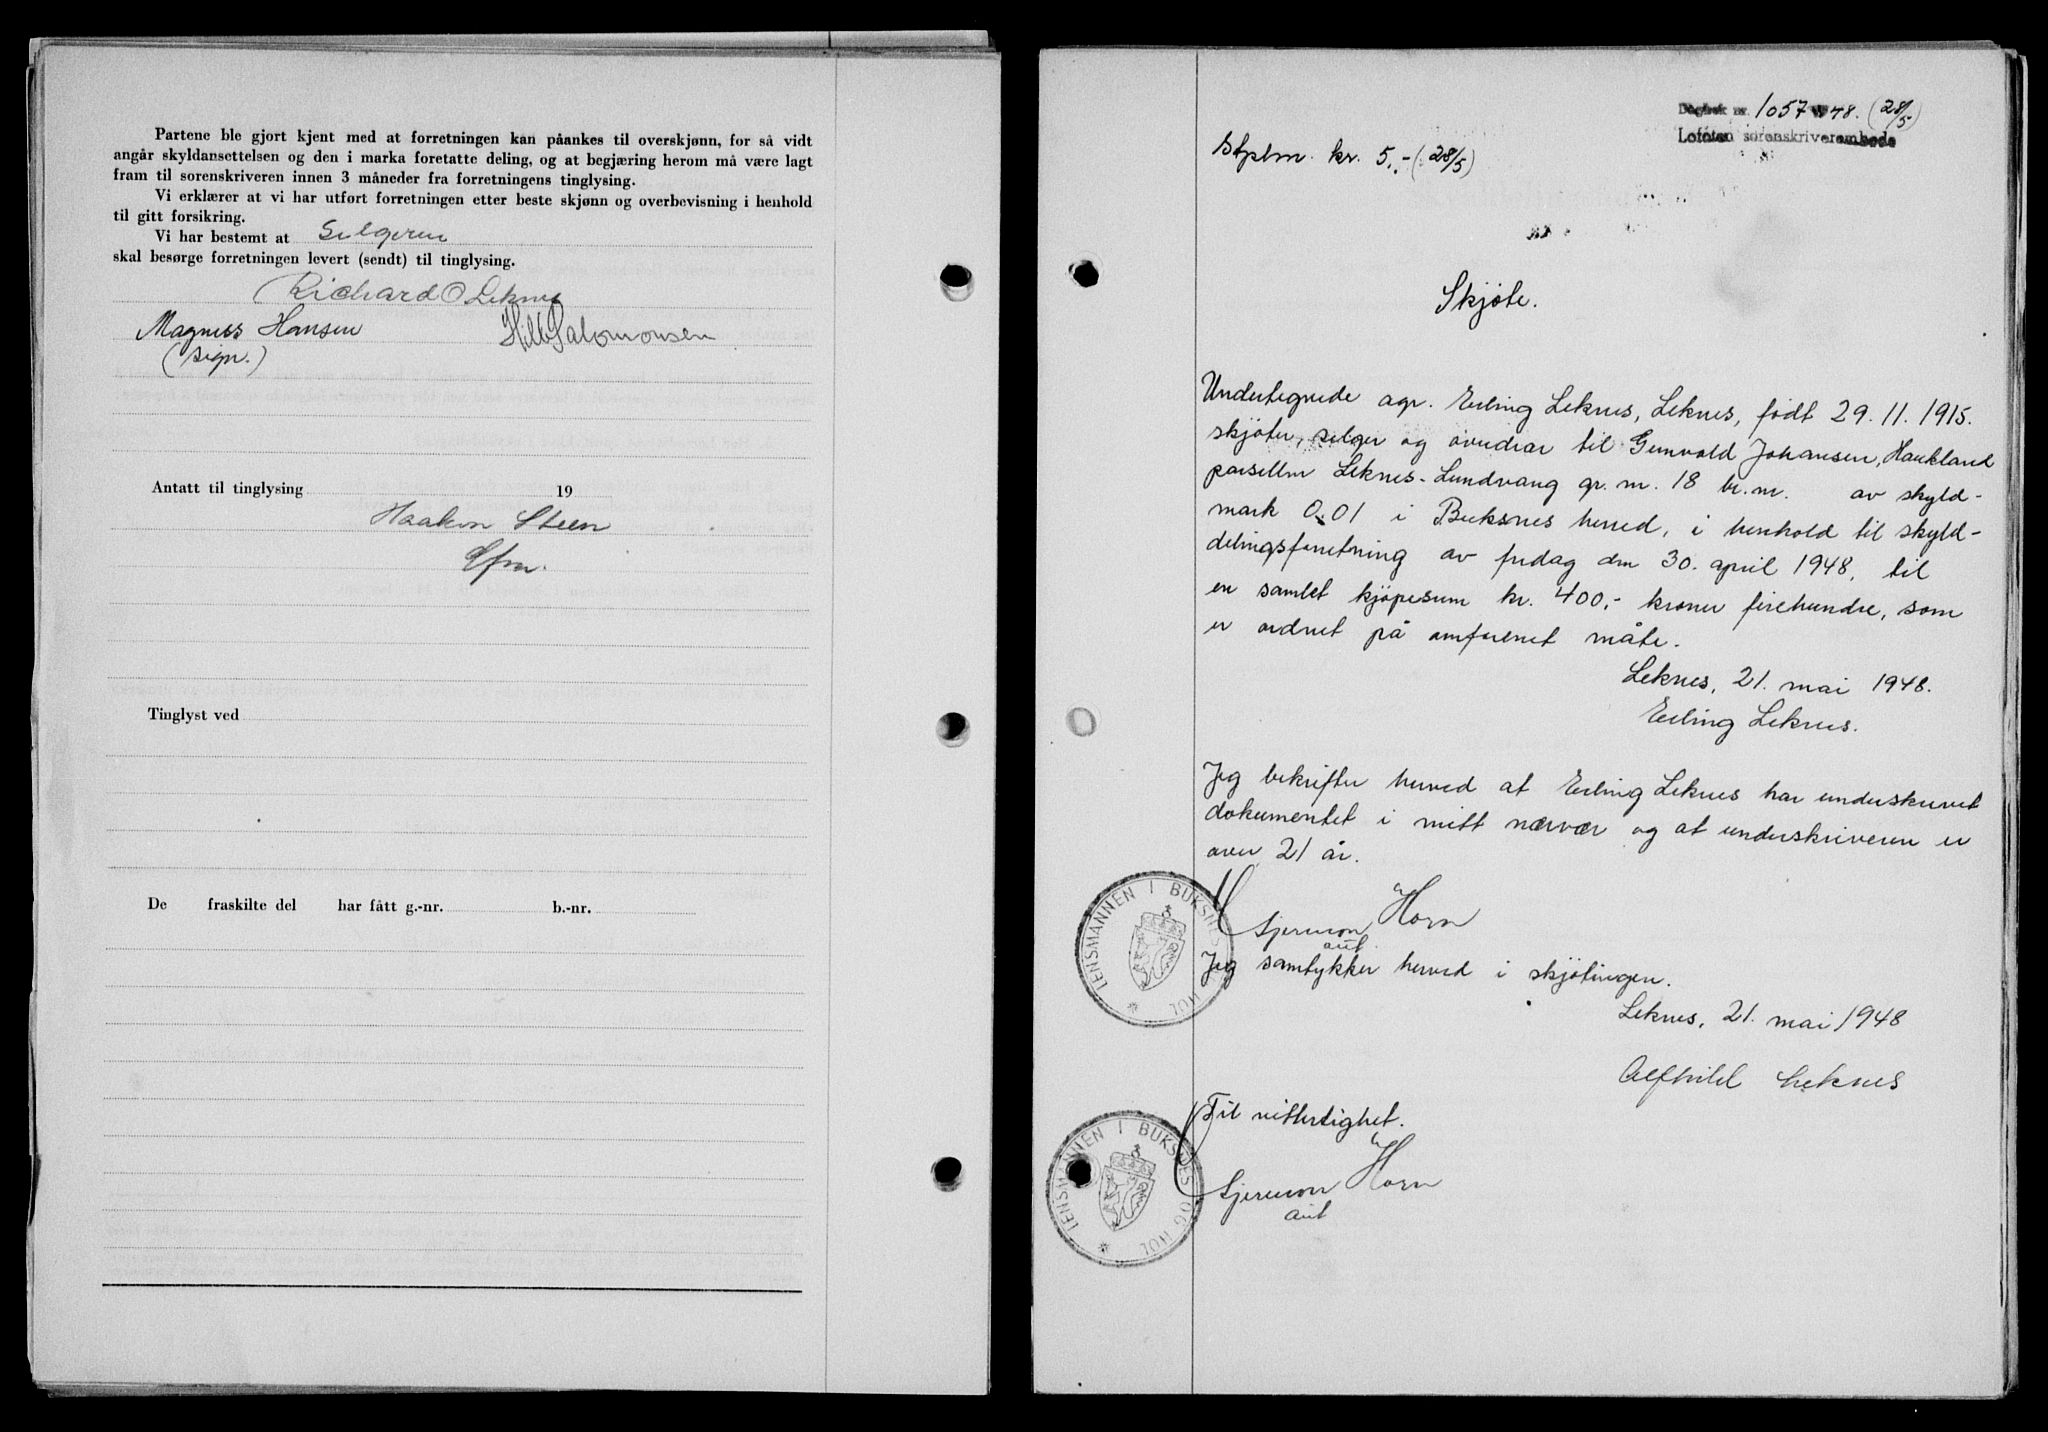 Partene ble gjort kjent med at forretningen kan påankes til overskjønn, for så vidt
angår skyldansettelsen og den i marka foretatte deling, og at begjæring herom må være lagt
fram til sorenskriveren innen 3 måneder fra forretningens tinglysing.
Vi erklærer at vi har utført forretningen etter beste skjønn og overbevisning i henhold
til gitt forsikring.
Vi har bestemt at Selgeren
skal besørge forretningen levert (sendt) til tinglysing.
Richard O Leknes
Magnus Hansen Hilb Salomonsen
(sign.)
Antatt til tinglysing 19
Haakon Steen
Tinglyst ved
De fraskilte del har fått g.-nr. b.-nr.
Dagbok nr. 1057 48. (28/5)
Lofoten sorenskriverembede
Stplm. kr. 5,- (28/5)
Skjøte.
Undertegnede agr. Erling Leknes, Leknes, født 29.11.1915.
skjøter, selger og overdrar til Gunvald Johansen, Haukland
parsellen Leknes-Lundvang gr. nr. 18 br. nr. av skyld-
mark 0.01 i Buksnes herred, i henhold til skyld-
delingsforretning av fredag den 30. april 1948, til
en samlet kjøpesum kr. 400,- kroner firehundre, som
er ordnet på omforenet måte.
Leknes, 21. mai 1948.
Erling Leknes.
Jeg bekrefter herved at Erling Leknes har underskrevet
dokumentet i mitt nærvær og at underskriveren er
over 21 år.
Horn
aut.
LENSMANNEN I BUKSNES HOL
Jeg samtykker herved i skjøtingen.
Leknes, 21. mai 1948
Alfhild Leknes
Til vitterlighet.
Horn
aut
LENSMANNEN I BUKSNES OG HOL